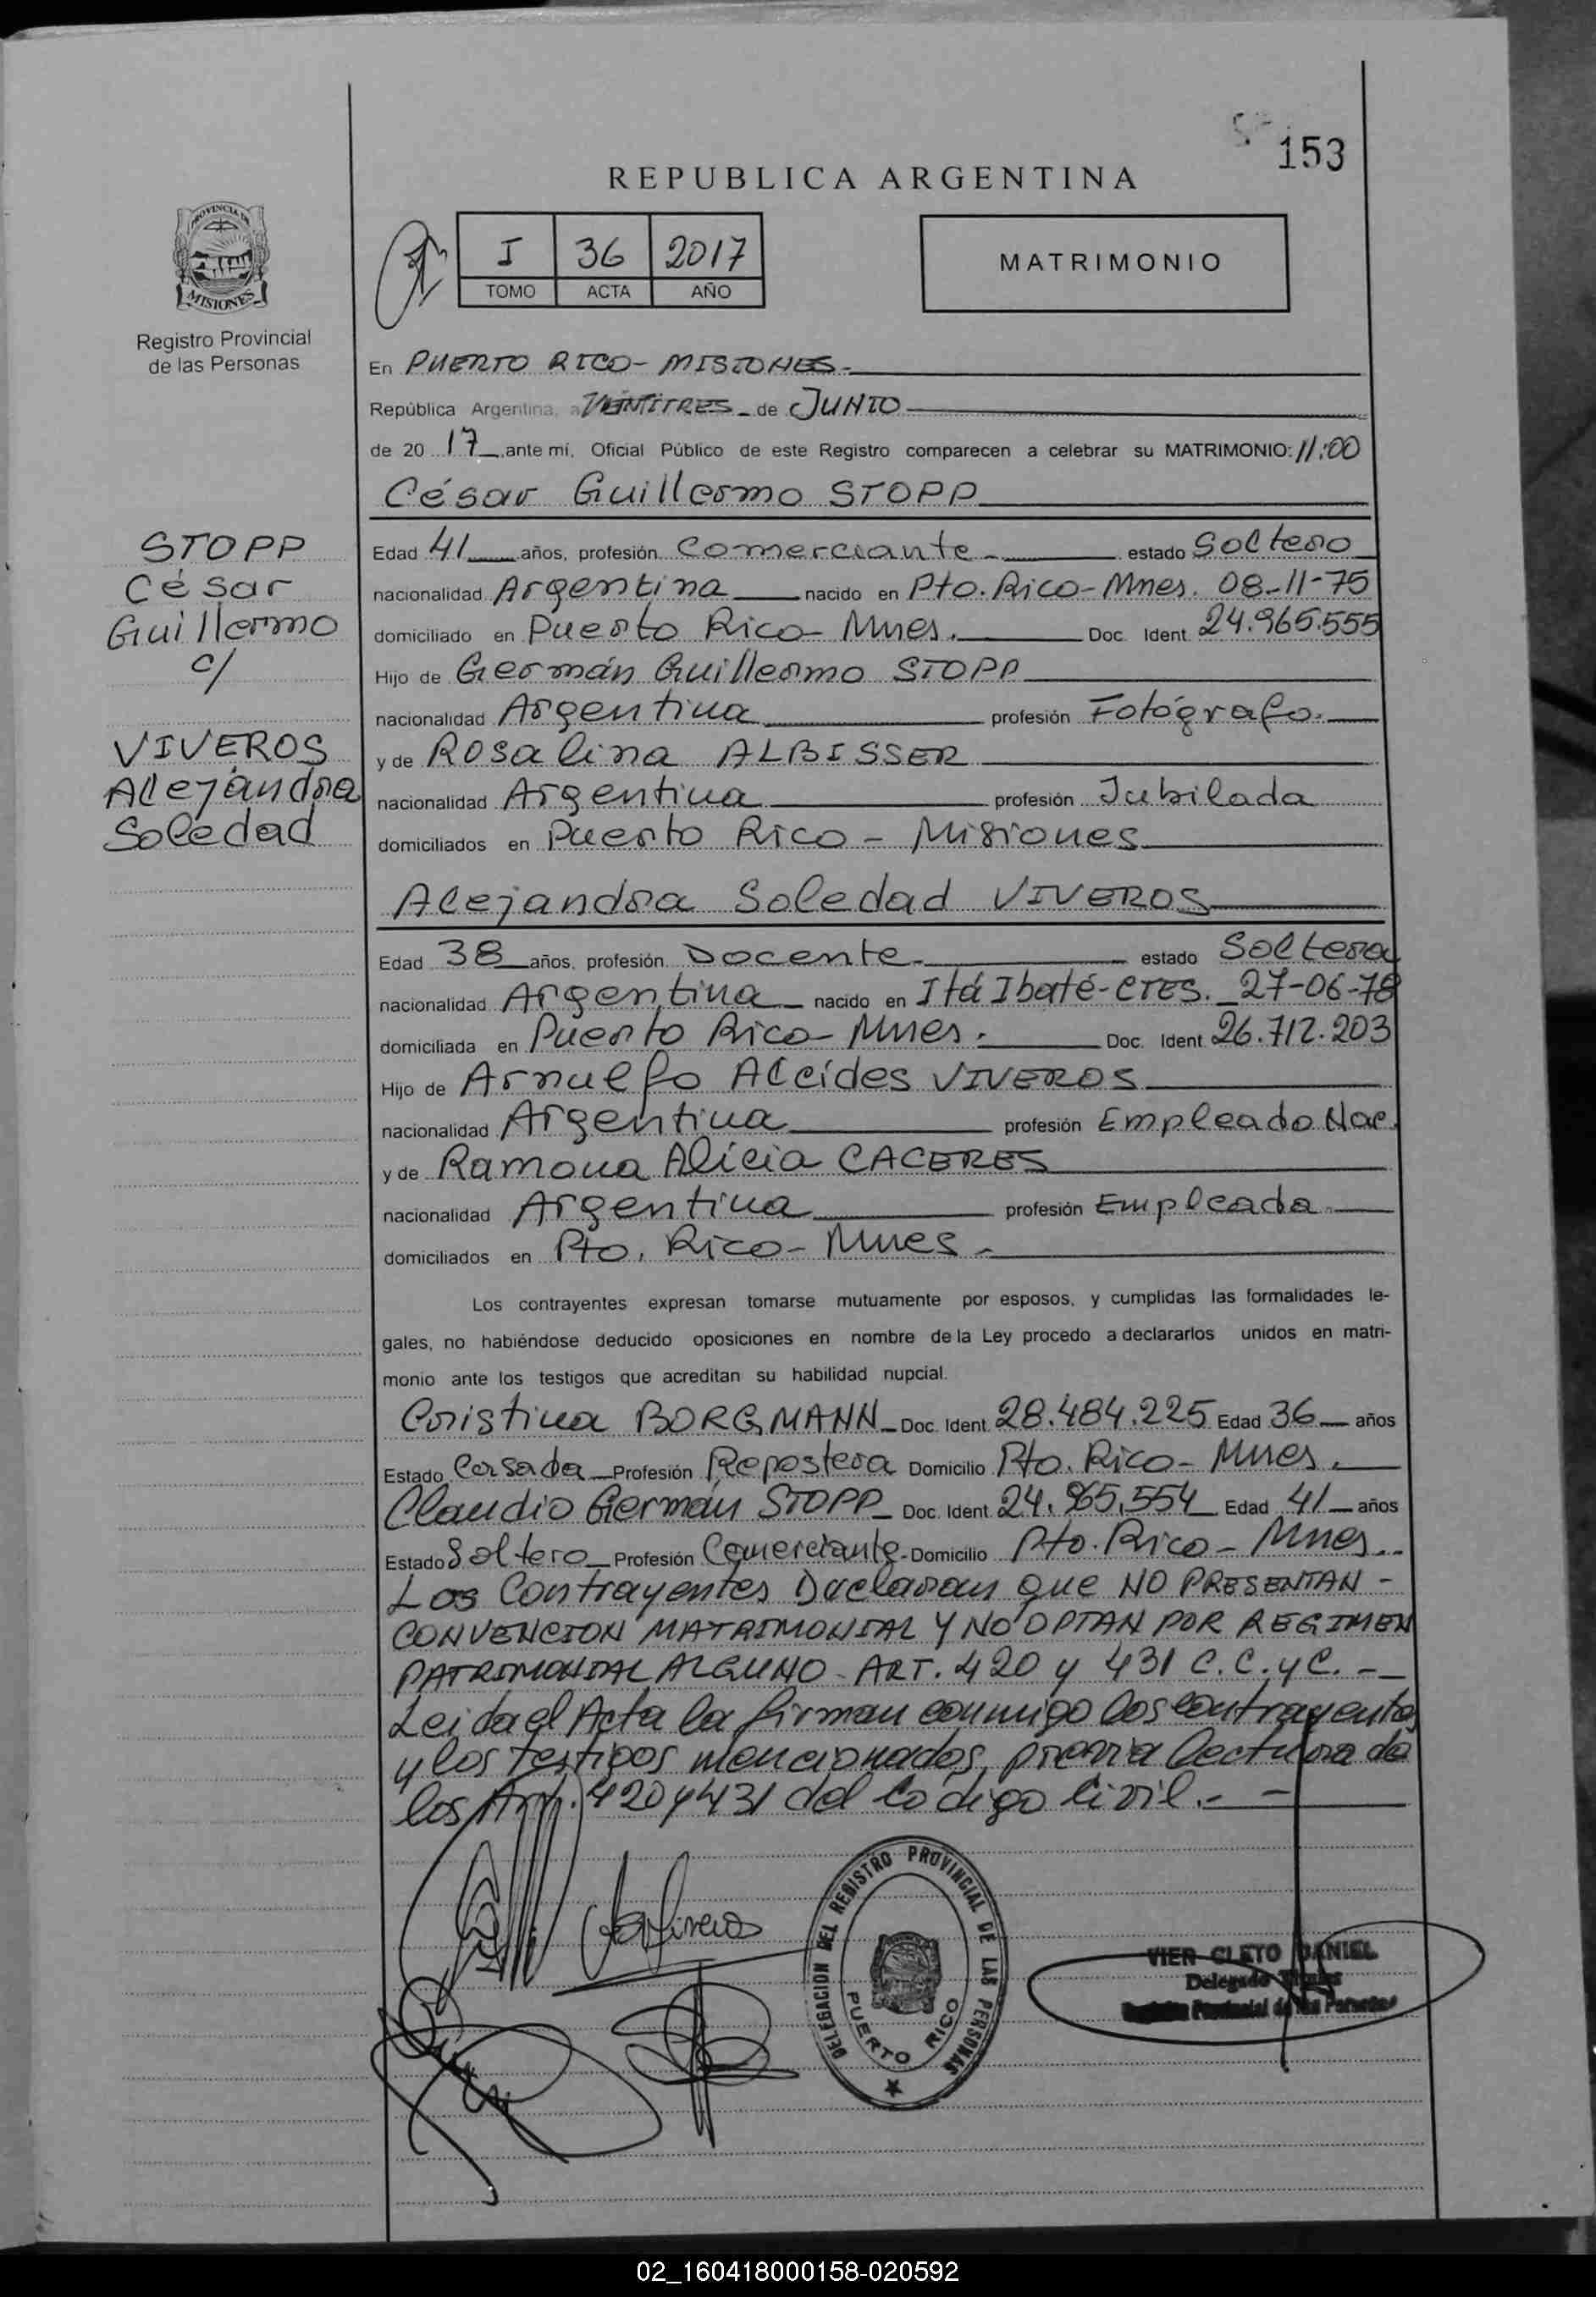 153
REPUBLICA ARGENTINA
PROVINCIA DE
MISIONES
Registro Provincial
de las Personas
I 36 2017
TOMO ACTA AÑO
MATRIMONIO
En PUERTO RICO - MISIONES.-
República Argentina, a VEINTITRES - de JUNIO
de 20 17 ante mí, Oficial Público de este Registro comparecen a celebrar su MATRIMONIO: 11:00
César Guillermo STOPP
STOPP
César
Guillermo
c/
VIVEROS
Alejandra
Soledad
Edad 41 años, profesión Comerciante - estado Soltero
nacionalidad Argentina nacido en Pto. Rico - Mnes. 08-11-75
domiciliado en Puerto Rico - Mnes. Doc. Ident. 24.965.555
Hijo de Germán Guillermo STOPP
nacionalidad Argentina profesión Fotógrafo.
y de Rosalina ALBISSER
nacionalidad Argentina profesión Jubilada
domiciliados en Puerto Rico - Misiones
Alejandra Soledad VIVEROS
Edad 38 años, profesión Docente - estado Soltera
nacionalidad Argentina nacido en Itá Ibaté - CTES. 27-06-78
domiciliada en Puerto Rico - Mnes. Doc. Ident. 26.712.203
Hijo de Arnulfo Alcides VIVEROS
nacionalidad Argentina profesión Empleado Nac.
y de Ramona Alicia CACERES
nacionalidad Argentina profesión Empleada
domiciliados en Pto. Rico - Mnes -
Los contrayentes expresan tomarse mutuamente por esposos, y cumplidas las formalidades le-
gales, no habiéndose deducido oposiciones en nombre de la Ley procedo a declararlos unidos en matri-
monio ante los testigos que acreditan su habilidad nupcial.
Cristina BORGMANN - Doc. Ident. 28.484.225 Edad 36 años
Estado Casada Profesión Repostera Domicilio Pto. Rico - Mnes.
Claudio Germán STOPP Doc. Ident. 24.965.554 Edad 41 años
Estado Soltero Profesión Comerciante - Domicilio Pto. Rico - Mnes.
Los Contrayentes Declaran que NO PRESENTAN -
CONVENCION MATRIMONIAL Y NO OPTAN POR REGIMEN
PATRIMONIAL ALGUNO - ART. 420 y 431 C.C. y C. -
Leida el Acta la firman conmigo los contrayentes
y los testigos mencionados, previa lectura de
los Art. 420 y 431 del Código Civil. -
DELEGACION DEL REGISTRO PROVINCIAL DE LAS PERSONAS
PUERTO RICO
VIER CLETO DANIEL
Delegado Titular
Registro Provincial de las Personas
02_160418000158-020592